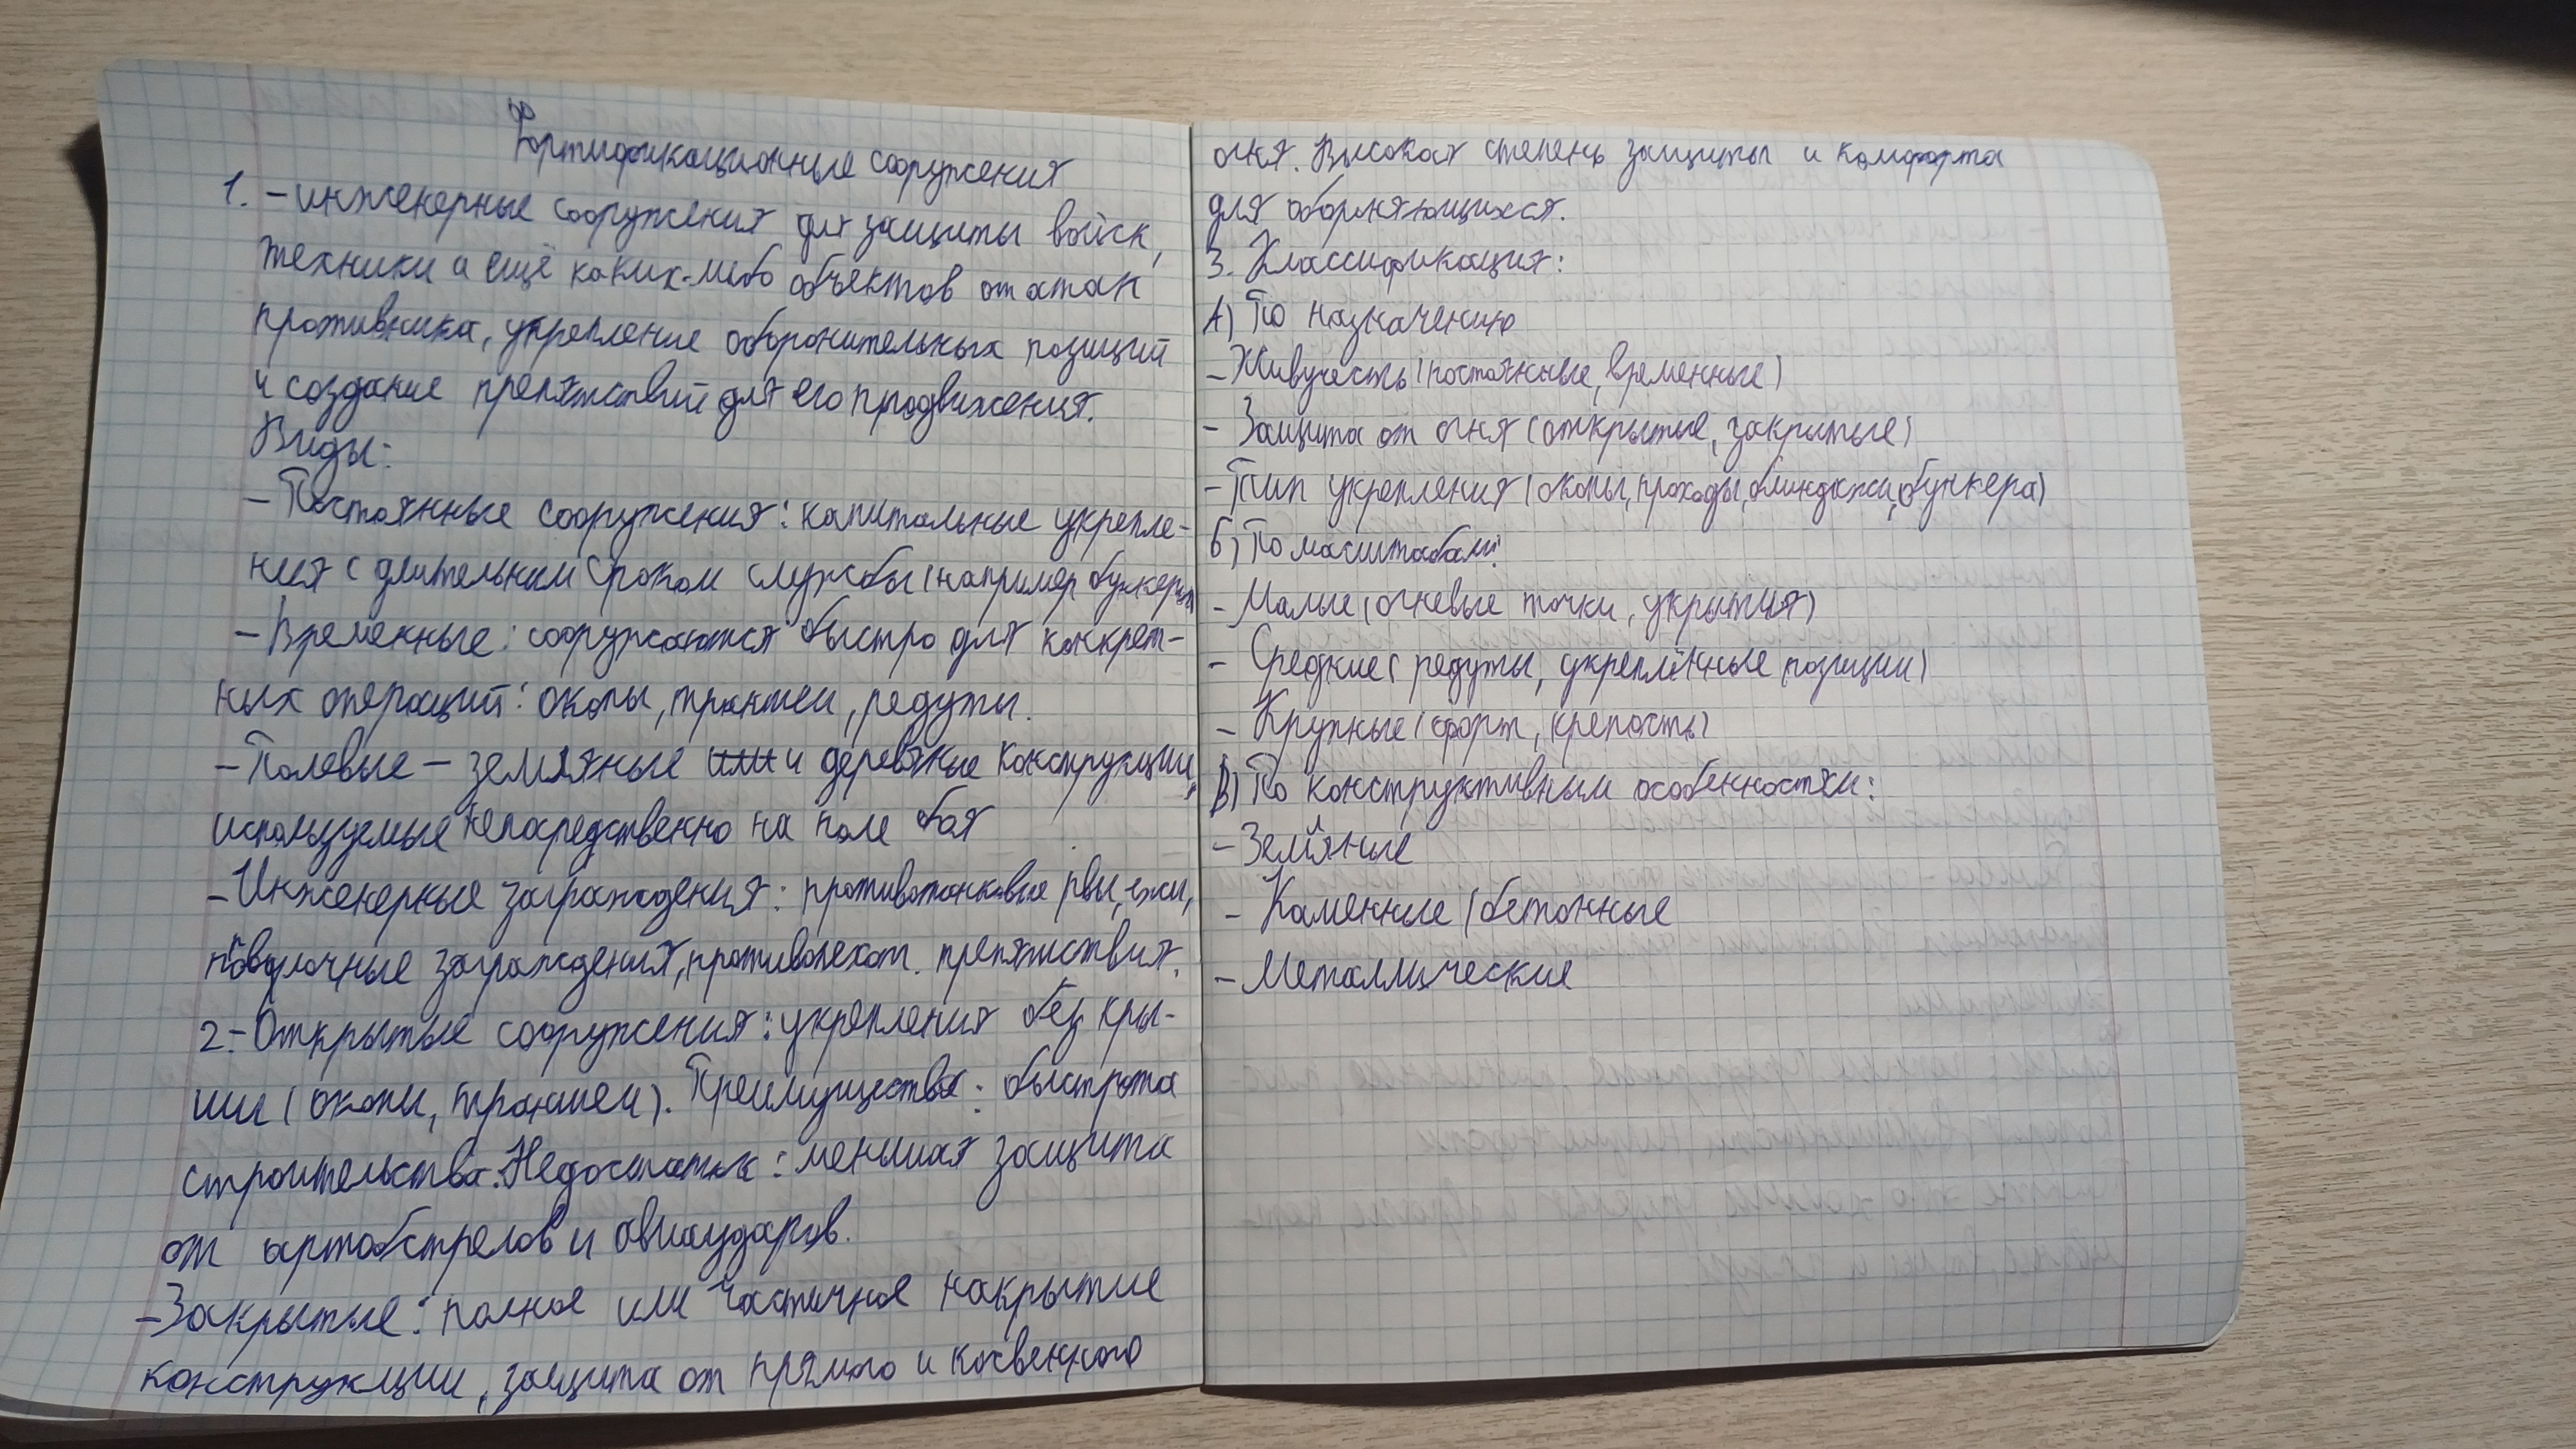 Фортификационные сооружения
1. – инженерные сооружения для защиты войск,
техники и ещё каких-либо объектов от атак
противника, укрепление оборонительных позиций
и создание препятствий для его продвижения.
Виды:
– Постоянные сооружения: капитальные укрепле-
ния с длительным сроком службы (например бункеры)
– Временные: сооружаются быстро для конкрет-
ных операций: окопы, траншеи, редуты.
– Полевые – земляные или и деревяные конструкции,
используемые непосредственно на поле боя
– Инженерные заграждения: противотанковые рвы, ежи,
проволочные заграждения, противопехот. препятствия.
2. – Открытые сооружения: укрепления без кры-
ши (окопы, траншеи). Преимущества: быстрота
строительства. Недостаток: меньшая защита
от артобстрелов и авиаударов.
– Закрытые: полное или частичное накрытие
конструкции, защита от прямого и косвенного
огня. Высокая степень защиты и комфорта
для обороняющихся.
3. Классификация:
А) По назначению
– Живучесть (постоянные, временные)
– Защита от огня (открытые, закрытые)
– Тип укрепления (окопы, проходы, блиндажи, бункера)
Б) По масштабам:
– Малые (огневые точки, укрытия)
– Средние (редуты, укреплённые позиции)
– Крупные (форт, крепость)
В) По конструктивным особенностям:
– Земляные
– Каменные / бетонные
– Металлические